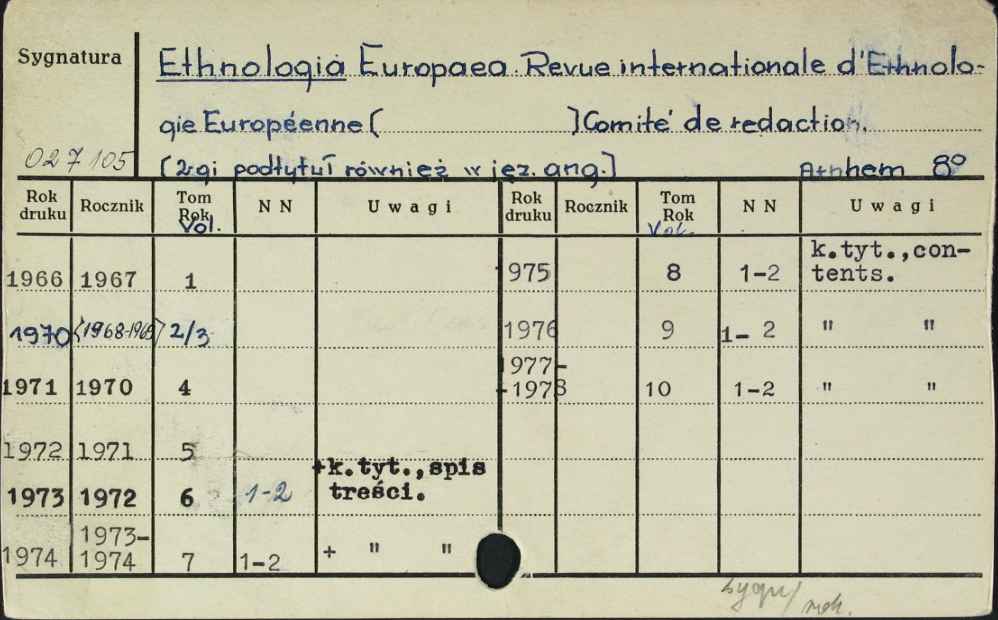 Sygnatura
Ethnologia Europaea. Revue internationale d'Ethnolo-
gie Européenne ( ) Comité de redaction.
027105
[2-gi podtytuł również w jęz. ang.] Arnhem 8°
Rok druku Rocznik Tom Rok Vol. NN Uwagi Rok druku Rocznik Tom Rok Vol. NN Uwagi
1966 1967 1
975 8 1-2 k.tyt.,con-
tents.
1970 [1968-1969] 2/3
1976 9 1-2 " "
1971 1970 4
1977-
-1978 10 1-2 " "
1972 1971 5
1973 1972 6 1-2 +k.tyt.,spis
treści.
1974 1973-
1974 7 1-2 + " "